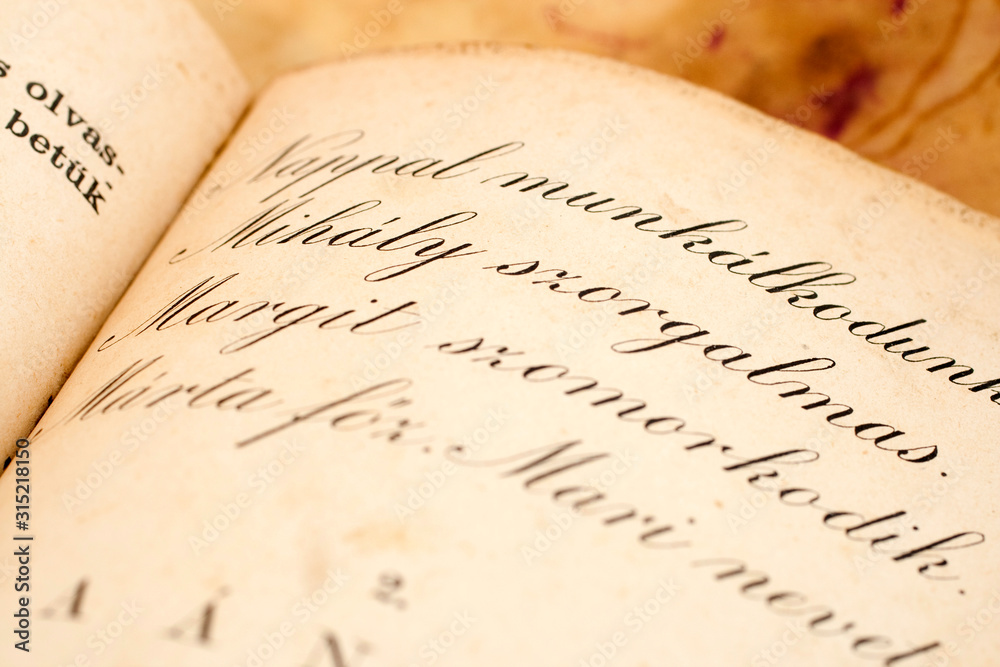 s olvas-
betük
Nappal munkálkodunk
Mihály szorgalmas.
Margit szomorkodik.
Márta főz. Mari nevet
2.
A Á N
Adobe Stock | #315218150